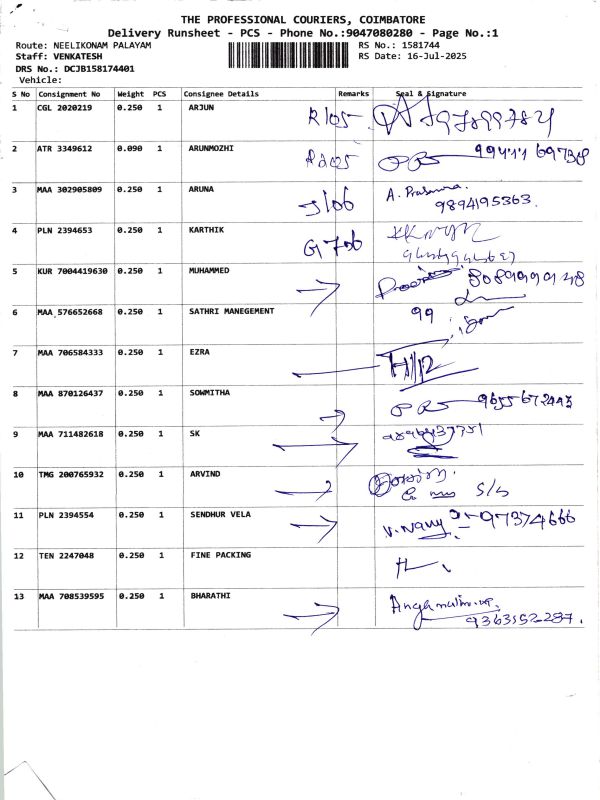 THE PROFESSIONAL COURIERS, COIMBATORE
Delivery Runsheet - PCS - Phone No.:9047080280 - Page No.:1
Route: NEELIKONAM PALAYAM RS No.: 1581744
Staff: VENKATESH RS Date: 16-Jul-2025
DRS No.: DCJB158174401
Vehicle:
S No Consignment No Weight PCS Consignee Details Remarks Seal & Signature
1 CGL 2020219 0.250 1 ARJUN
2 ATR 3349612 0.090 1 ARUNMOZHI
3 MAA 302905809 0.250 1 ARUNA A. Prasanna.
9894195363.
4 PLN 2394653 0.250 1 KARTHIK
5 KUR 7004419630 0.250 1 MUHAMMED
6 MAA 576652668 0.250 1 SATHRI MANEGEMENT 99
7 MAA 706584333 0.250 1 EZRA
8 MAA 870126437 0.250 1 SOWMITHA
9 MAA 711482618 0.250 1 SK
10 TMG 200765932 0.250 1 ARVIND
11 PLN 2394554 0.250 1 SENDHUR VELA
12 TEN 2247048 0.250 1 FINE PACKING
13 MAA 708539595 0.250 1 BHARATHI
9363552287.